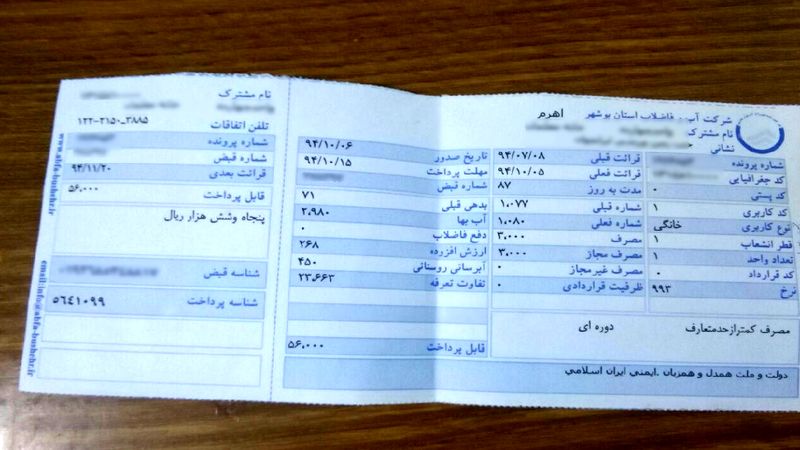 شرکت آب و فاضلاب استان بوشهر اهرم
نام مشترک
نشانی
شماره پرونده
کد جغرافیایی
کد پستی ۰
کد کاربری ۱
نوع کاربری خانگی
قطر انشعاب ۱
تعداد واحد ۱
کد قرارداد ۰
نرخ ۹۹۳
قرائت قبلی ۹۴/۰۷/۰۸
قرائت فعلی ۹۴/۱۰/۰۵
مدت به روز ۸۷
شماره قبلی ۱,۰۷۷
شماره فعلی ۱,۰۸۰
مصرف ۳,۰۰۰
مصرف مجاز ۳,۰۰۰
مصرف غیرمجاز ۰
ظرفیت قراردادی ۰
مصرف کمترازحدمتعارف دوره ای
۹۴/۱۰/۰۶
تاریخ صدور ۹۴/۱۰/۱۵
مهلت پرداخت
شماره قبض
بدهی قبلی ۷۱
آب بها ۲,۹۸۰
دفع فاضلاب ۰
ارزش افزوده ۲۶۸
آبرسانی روستائی ۴۵۰
تفاوت تعرفه ۲۳,۶۶۳
قابل پرداخت ۵۶,۰۰۰
دولت و ملت همدل و همزبان .ایمنی ایران اسلامی
نام مشترک
تلفن اتفاقات ۱۲۲-۲۱۵۰_۳۸۸۵
شماره پرونده
شماره قبض
قرائت بعدی ۹۴/۱۱/۲۰
قابل پرداخت ۵۶,۰۰۰
پنجاه وشش هزار ریال
شناسه قبض
شناسه پرداخت ۵۶۴۱۰۹۹
www.abfa-bushehr.ir
email:info@abfa-bushehr.ir